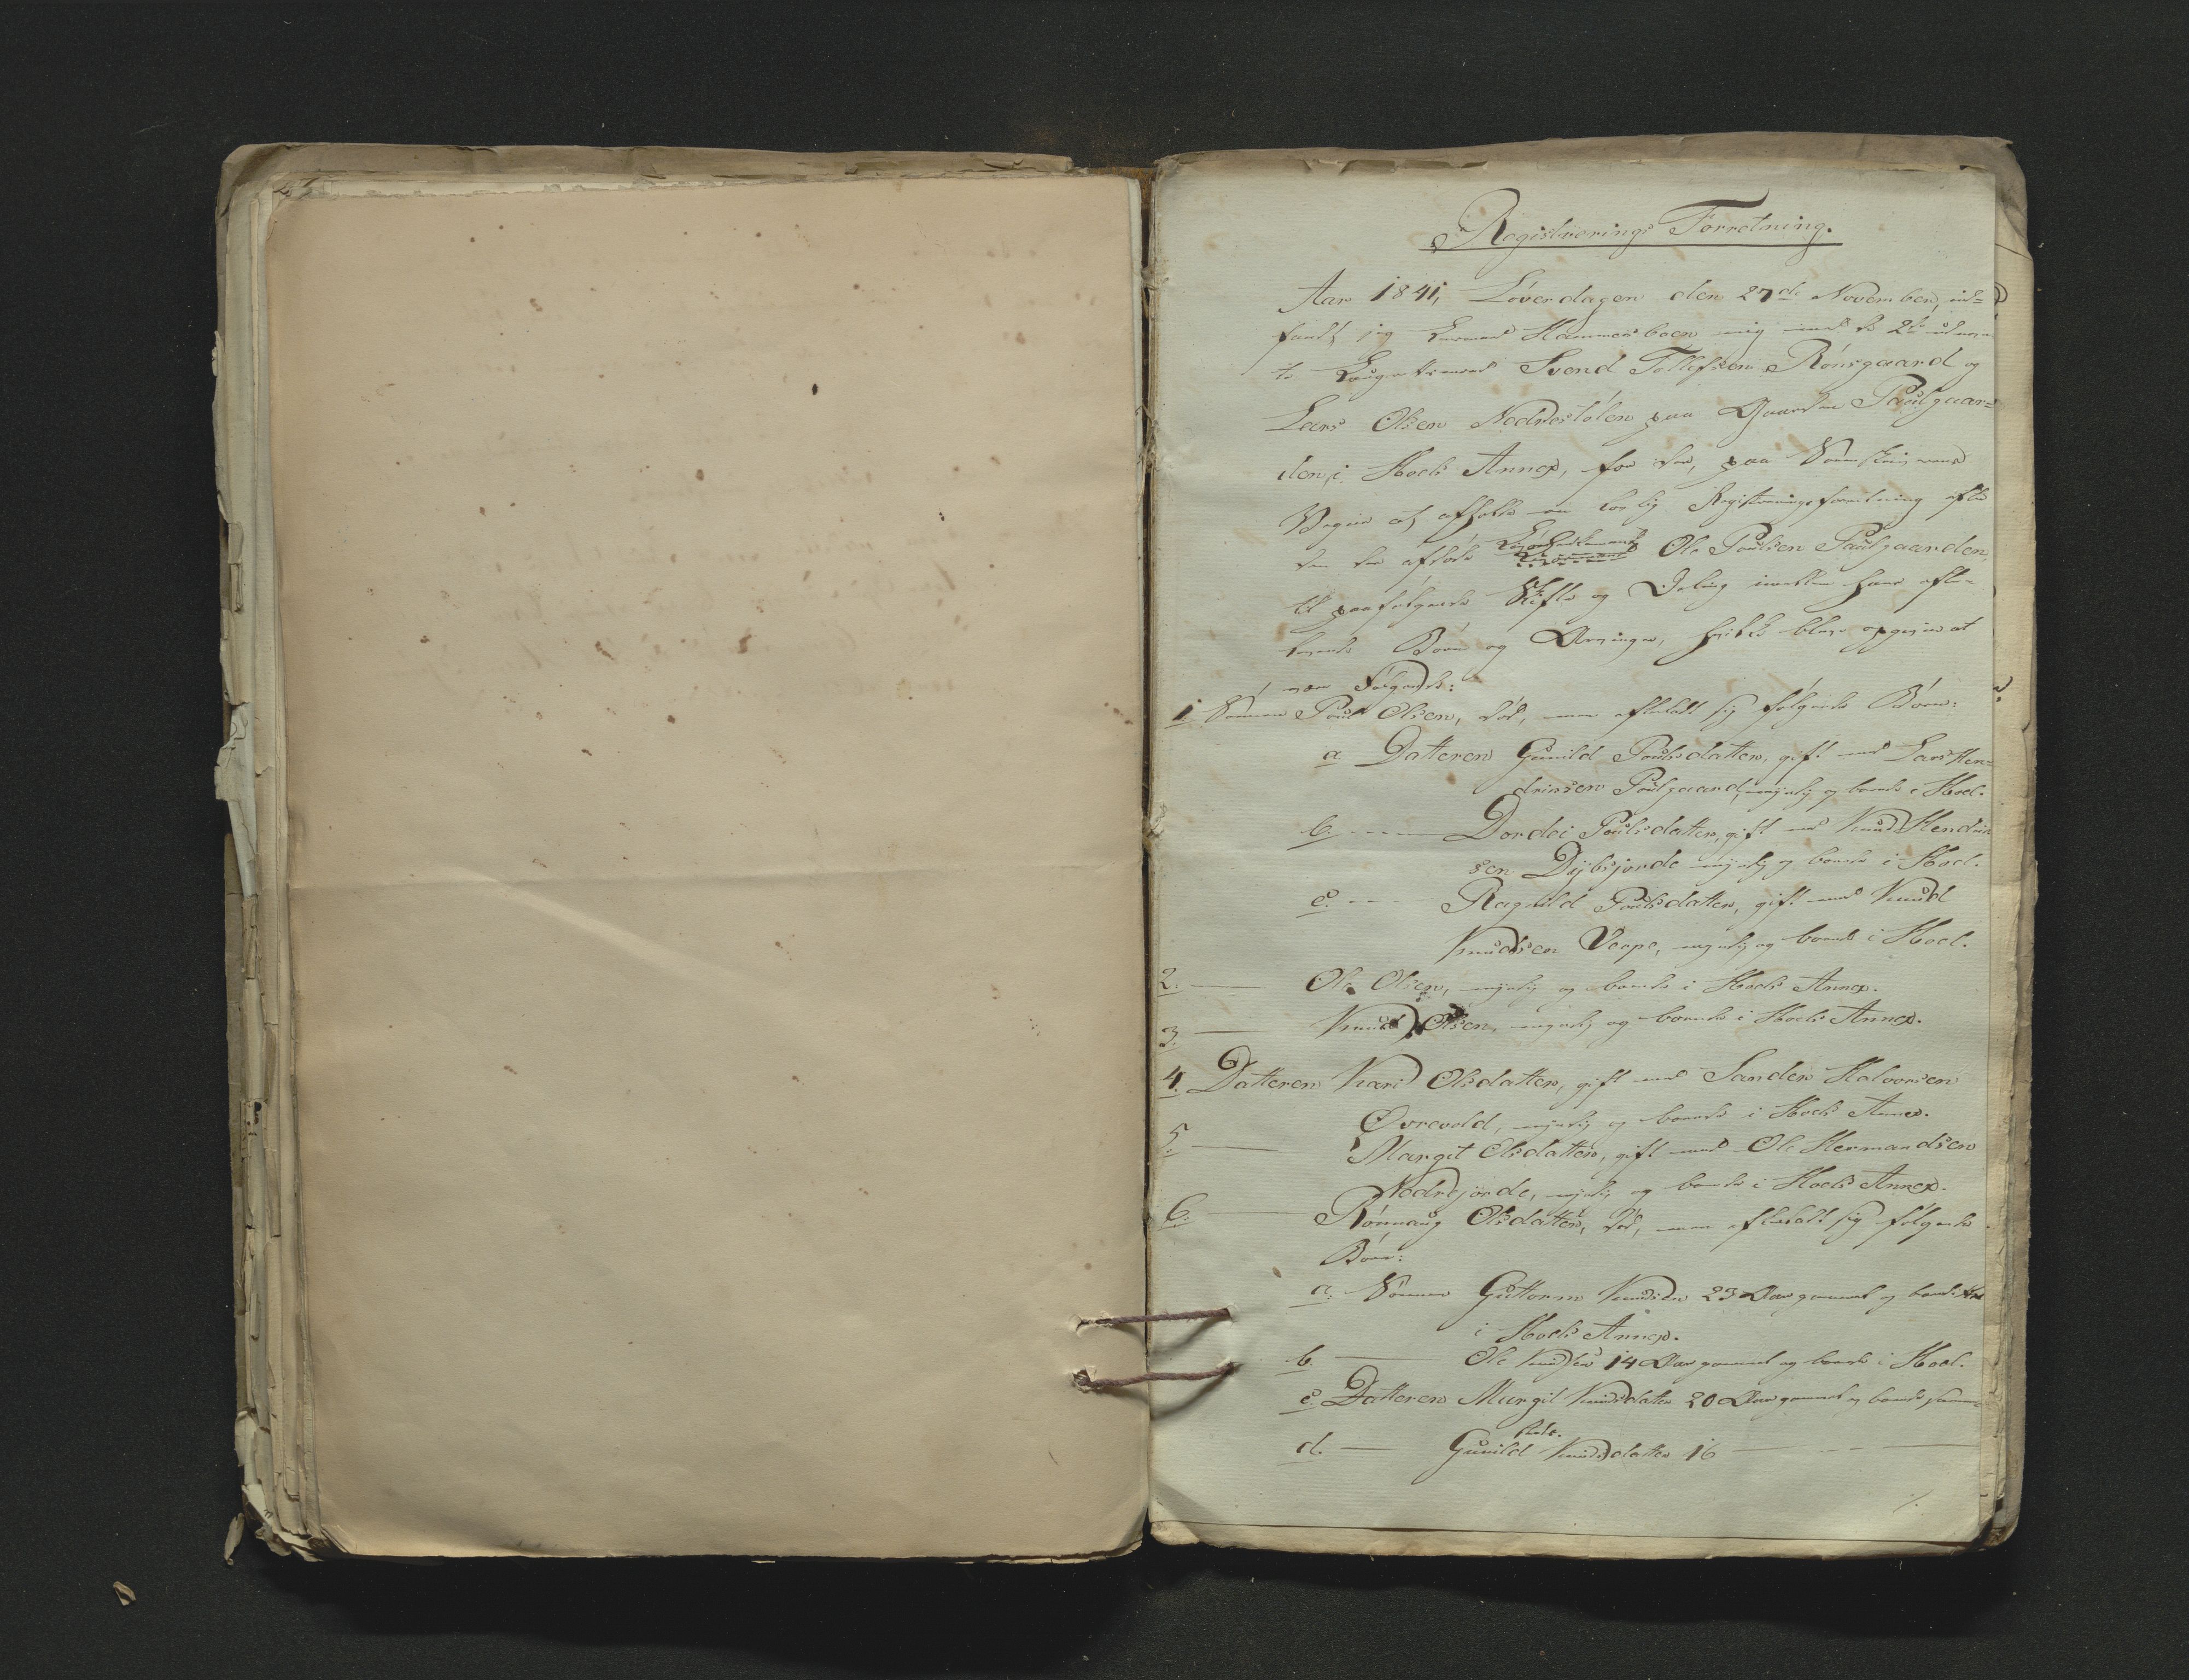 Registrerings Forretning.
Aar 1841, Løverdagen den 27de November, ind=
fandt jeg Lensmand Hammersboen mig med de 2de udnævn
te Laugrettesmænd Svend Tollefsen Rønsgaard og
Lars Olsen Nedrestølen paa Gaarden Paulgaar=
den, i Hoels Annex, for der, paa Sorenskriverens
Vegne at afholde en lovlig Registreringsforretning efter
den der afdøde Ole Poulsen Paulgaarden,
til paafølgende Skifte og Deling imellem hans efter=
levende Børn og Arvinger, hvilke blev opgivne at
være følgende:
1 Sønnen Poul Olsen, død, men efterladt sig følgende Børn:
a. Datteren Gunild Poulsdatter, gift med Lars Hen=
drinsen Poulgaard, myndig og boende i Hoel.
b. ---- Dordei Poulsdatter, gift med Knud Hendrin
sen Dybsjorde myndig og boende i Hoel.
c. --- Ragnild Poulsdatter, gift med Knud
Knudsen Veape, myndig og boende i Hoel.
2. — Ole Olsen, myndig og boende i Hoels Annex.
3. — Knud Olsen, myndig og boende i Hoels Annex.
4. Datteren Kari Olsdatter, gift med Sander Halvorsen
Øvrevold, myndig og boende i Hoels Annex.
5. — Margit Olsdatter, gift med Ole Hermandsen
Nedrejorde, myndig og boende i Hoels Annex.
6. — Rønnaug Olsdatter, død, men efterladt sig følgende
Børn:
a. Sønnen Guttorm Knudsen 23 Aar gammel og boende
i Hoels Annex.
b. — Ole Knudsen 14 Aar gammel og boende i Hoel.
c. Datteren Margit Knudsdatter 20 Aar gammel og boende samme
steds.
d. — Gunild Knudsdatter 16 — --- —